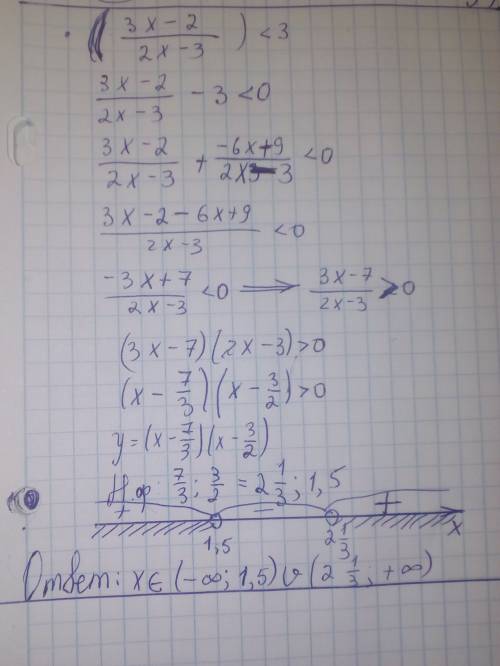 ( (3x-2)/(2x-3) ) < 3
(3x-2)/(2x-3) - 3 < 0
(3x-2)/(2x-3) + (-6x+9)/(2x-3) < 0
(3x-2-6x+9)/(2x-3) < 0
(-3x+7)/(2x-3) < 0 ⟹ (3x-7)/(2x-3) > 0
(3x-7)(2x-3)>0
(x-7/3)(x-3/2)>0
y=(x-7/3)(x-3/2)
Н.ф. 7/3; 3/2 = 2 1/3; 1,5
+ − +
1,5 2 1/3 x
Ответ: x∈(-∞; 1,5)∪(2 1/3; +∞)